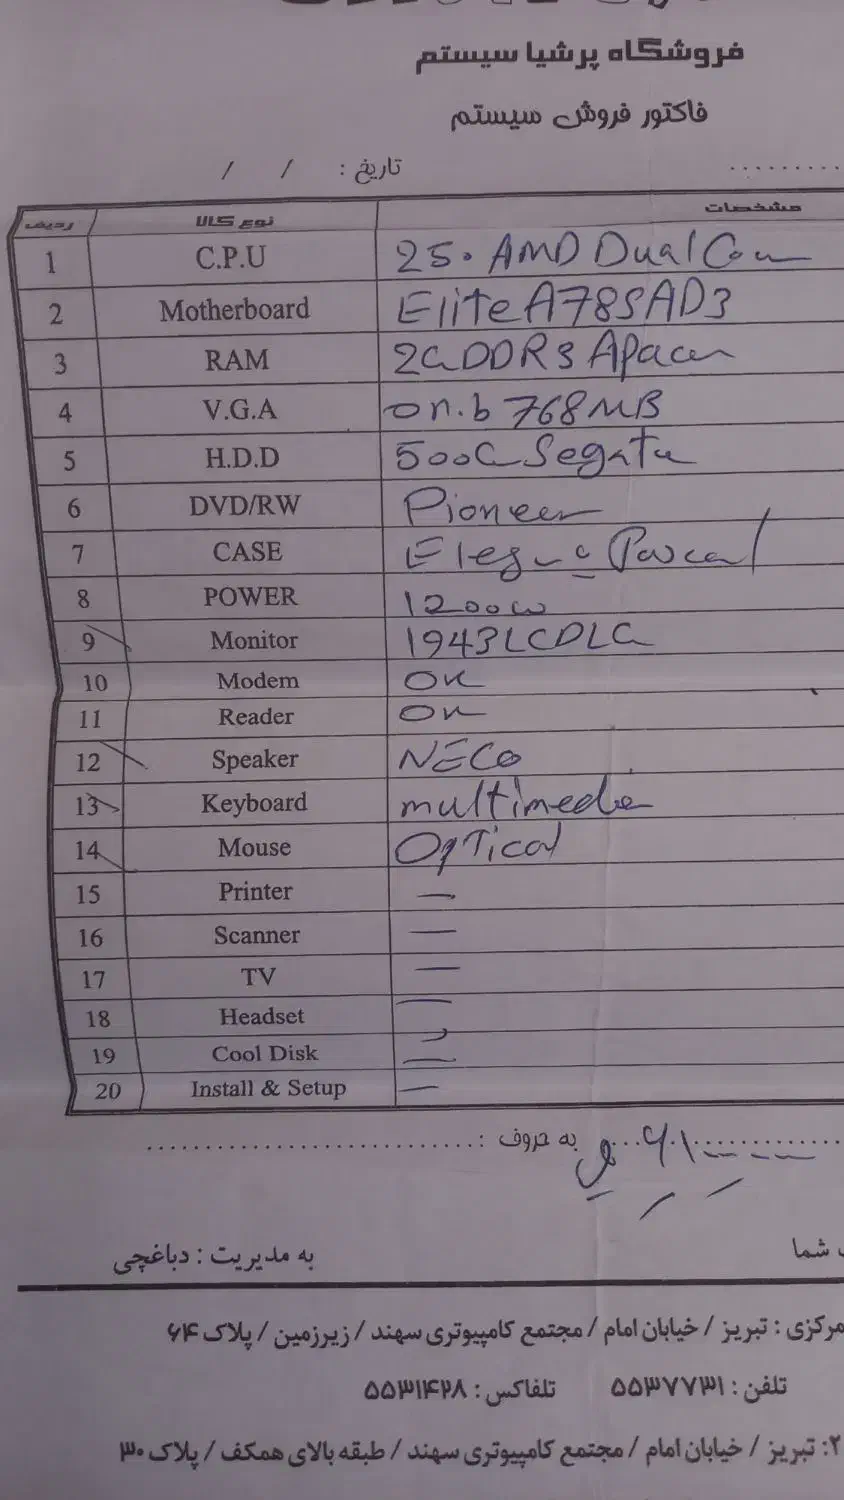 فروشگاه پرشیا سیستم
فاکتور فروش سیستم
تاریخ : / /
ردیف نوع کالا مشخصات
1 C.P.U 250 AMD Dual
2 Motherboard Elite A785AD3
3 RAM 2G DDR3 Apacer
4 V.G.A on.b 768 MB
5 H.D.D 500G Segate
6 DVD/RW Pioneer
7 CASE
8 POWER 1200w
9 Monitor 1943 LCD LG
10 Modem OK
11 Reader OK
12 Speaker NECO
13 Keyboard multimedia
14 Mouse Optical
15 Printer —
16 Scanner —
17 TV —
18 Headset —
19 Cool Disk —
20 Install & Setup —
به حروف :
شما
به مدیریت : دباغچی
مرکزی : تبریز / خیابان امام / مجتمع کامپیوتری سهند / زیرزمین / پلاک ۶۴
تلفن : ۵۵۳۷۷۳۱ تلفاکس : ۵۵۳۱۴۲۸
۲: تبریز / خیابان امام / مجتمع کامپیوتری سهند / طبقه بالای همکف / پلاک ۳۰